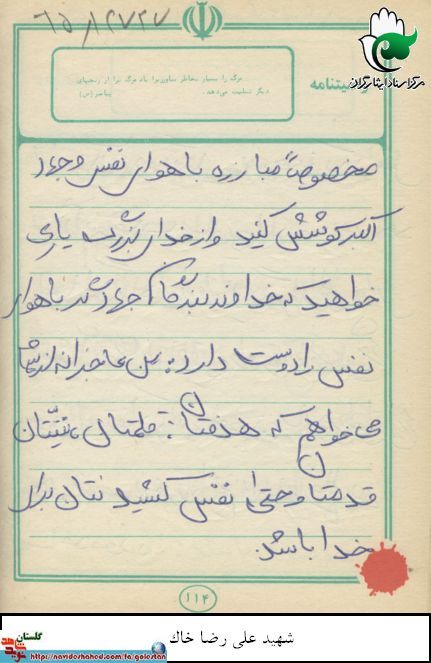 ۶۵/۱۲/۲۷
مرکز اسناد ایثارگران
وصیتنامه
مرگ را بسیار بخاطر بیاورید یاد مرگ شما را از رنجهای
دیگر تسلیت می‌دهد. پیامبر (ص)
مخصوصاً مبارزه با هوای نفس و جهاد
اکبر کوشش کنید و از خدای بزرگ یاری
خواهید که خداوند بندگان جهاد با هوای
نفس را دوست دارد: من عاجزانه از شما
می خواهم که هدفتان؛ قلمتان، نیّتتان
قدمتان و حتی نفس کشیدنتان برای
خدا باشد.
۱۱۴
شهید علی رضا خاك
گلستان
نوید شاهد
https://navideshahed.com/fa/golestan